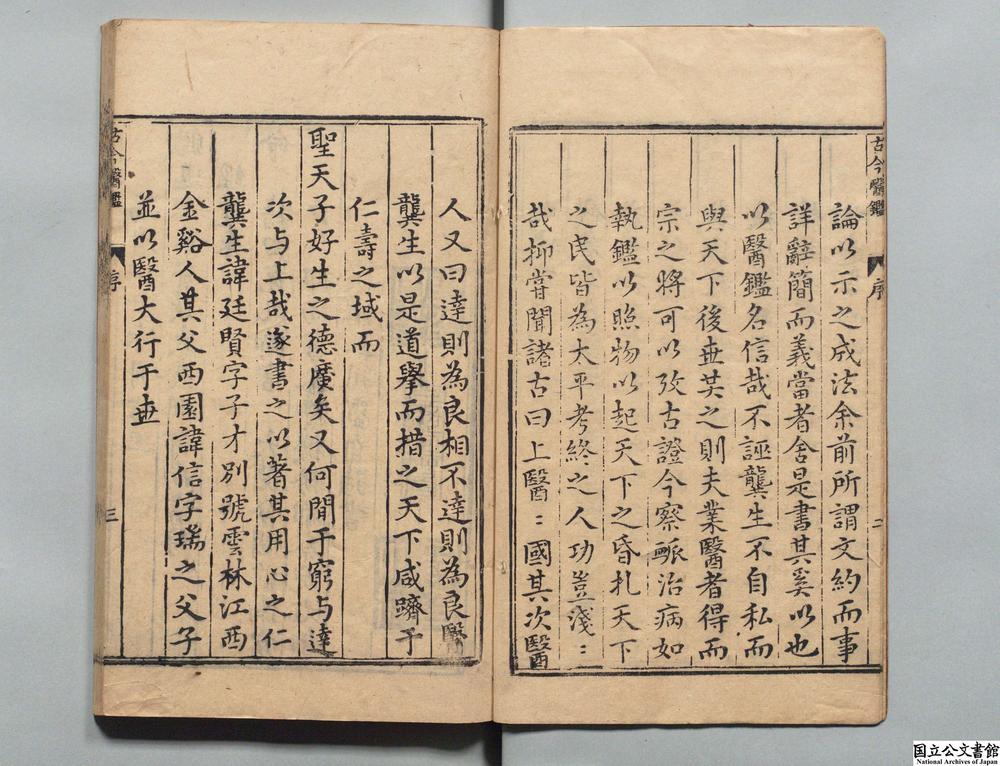 古今醫鑑 序 二
論以示之成法余前所謂文約而事
詳辭簡而義當者舍是書其奚以也
以醫鑑名信哉不誣龔生不自私而
與天下後世共之則夫業醫者得而
宗之將可以攷古證今察脈治病如
執鑑以照物以起天下之昏札天下
之民皆為太平考終之人功豈淺〻
哉抑嘗聞諸古曰上醫〻國其次醫
人又曰達則為良相不達則為良醫
龔生以是道舉而措之天下咸躋于
仁壽之域而
聖天子好生之德廣矣又何間于窮与達
次与上哉遂書之以著其用心之仁
龔生諱廷賢字子才別號雲林江西
金谿人其父西園諱信字瑞之父子
並以醫大行于世
古今醫鑑 序 三
国立公文書館
National Archives of Japan